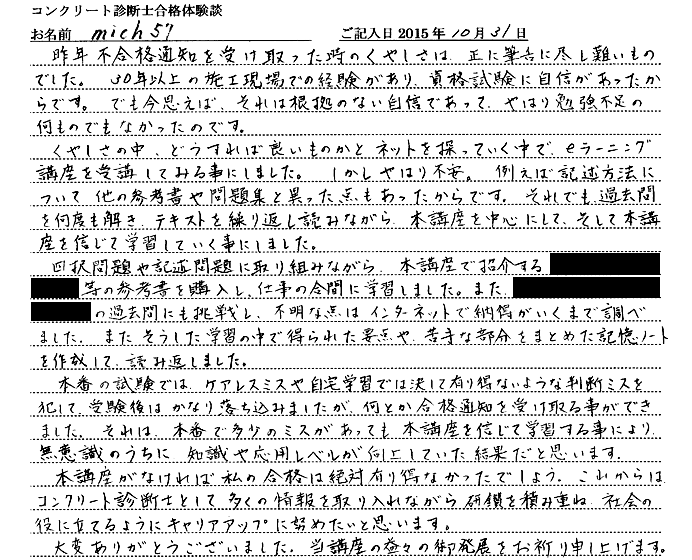 コンクリート診断士合格体験談
お名前 mich57 ご記入日 2015年10月31日
昨年不合格通知を受け取った時のくやしさは、正に筆舌に尽し難いもの
でした。30年以上の施工現場での経験があり、資格試験に自信があったか
らです。でも今思えば、それは根拠のない自信であって、やはり勉強不足の
何ものでもなかったのです。
くやしさの中、どうすれば良いものかとネットを探っていく中で、eラーニング
講座を受講してみる事にしました。しかしやはり不安。例えば記述方法に
ついて他の参考書や問題集と異った点もあったからです。それでも過去問
を何度も解き、テキストを繰り返し読みながら、本講座を中心にして、そして本講
座を信じて学習していく事にしました。
四択問題や記述問題に取り組みながら、本講座で紹介する
等の参考書を購入し、仕事の合間に学習しました。また、
の過去問にも挑戦し、不明な点はインターネットで納得がいくまで調べ
ました。またそうした学習の中で得られた要点や、苦手な部分をまとめた記憶ノート
を作成して、読み返しました。
本番の試験では、ケアレスミスや自宅学習では決して有り得ないような判断ミスを
犯して、受験後はかなり落ち込みましたが、何とか合格通知を受け取る事ができ
ました。それは、本番で多少のミスがあっても、本講座を信じて学習する事により、
無意識のうちに、知識や応用レベルが向上していた結果だと思います。
本講座がなければ私の合格は絶対有り得なかったでしょう。これからは
コンクリート診断士として多くの情報を取り入れながら研鑽を積み重ね、社会の
役に立てるようにキャリアアップに努めたいと思います。
大変ありがとうございました。当講座の益々の御発展をお祈り申し上げます。